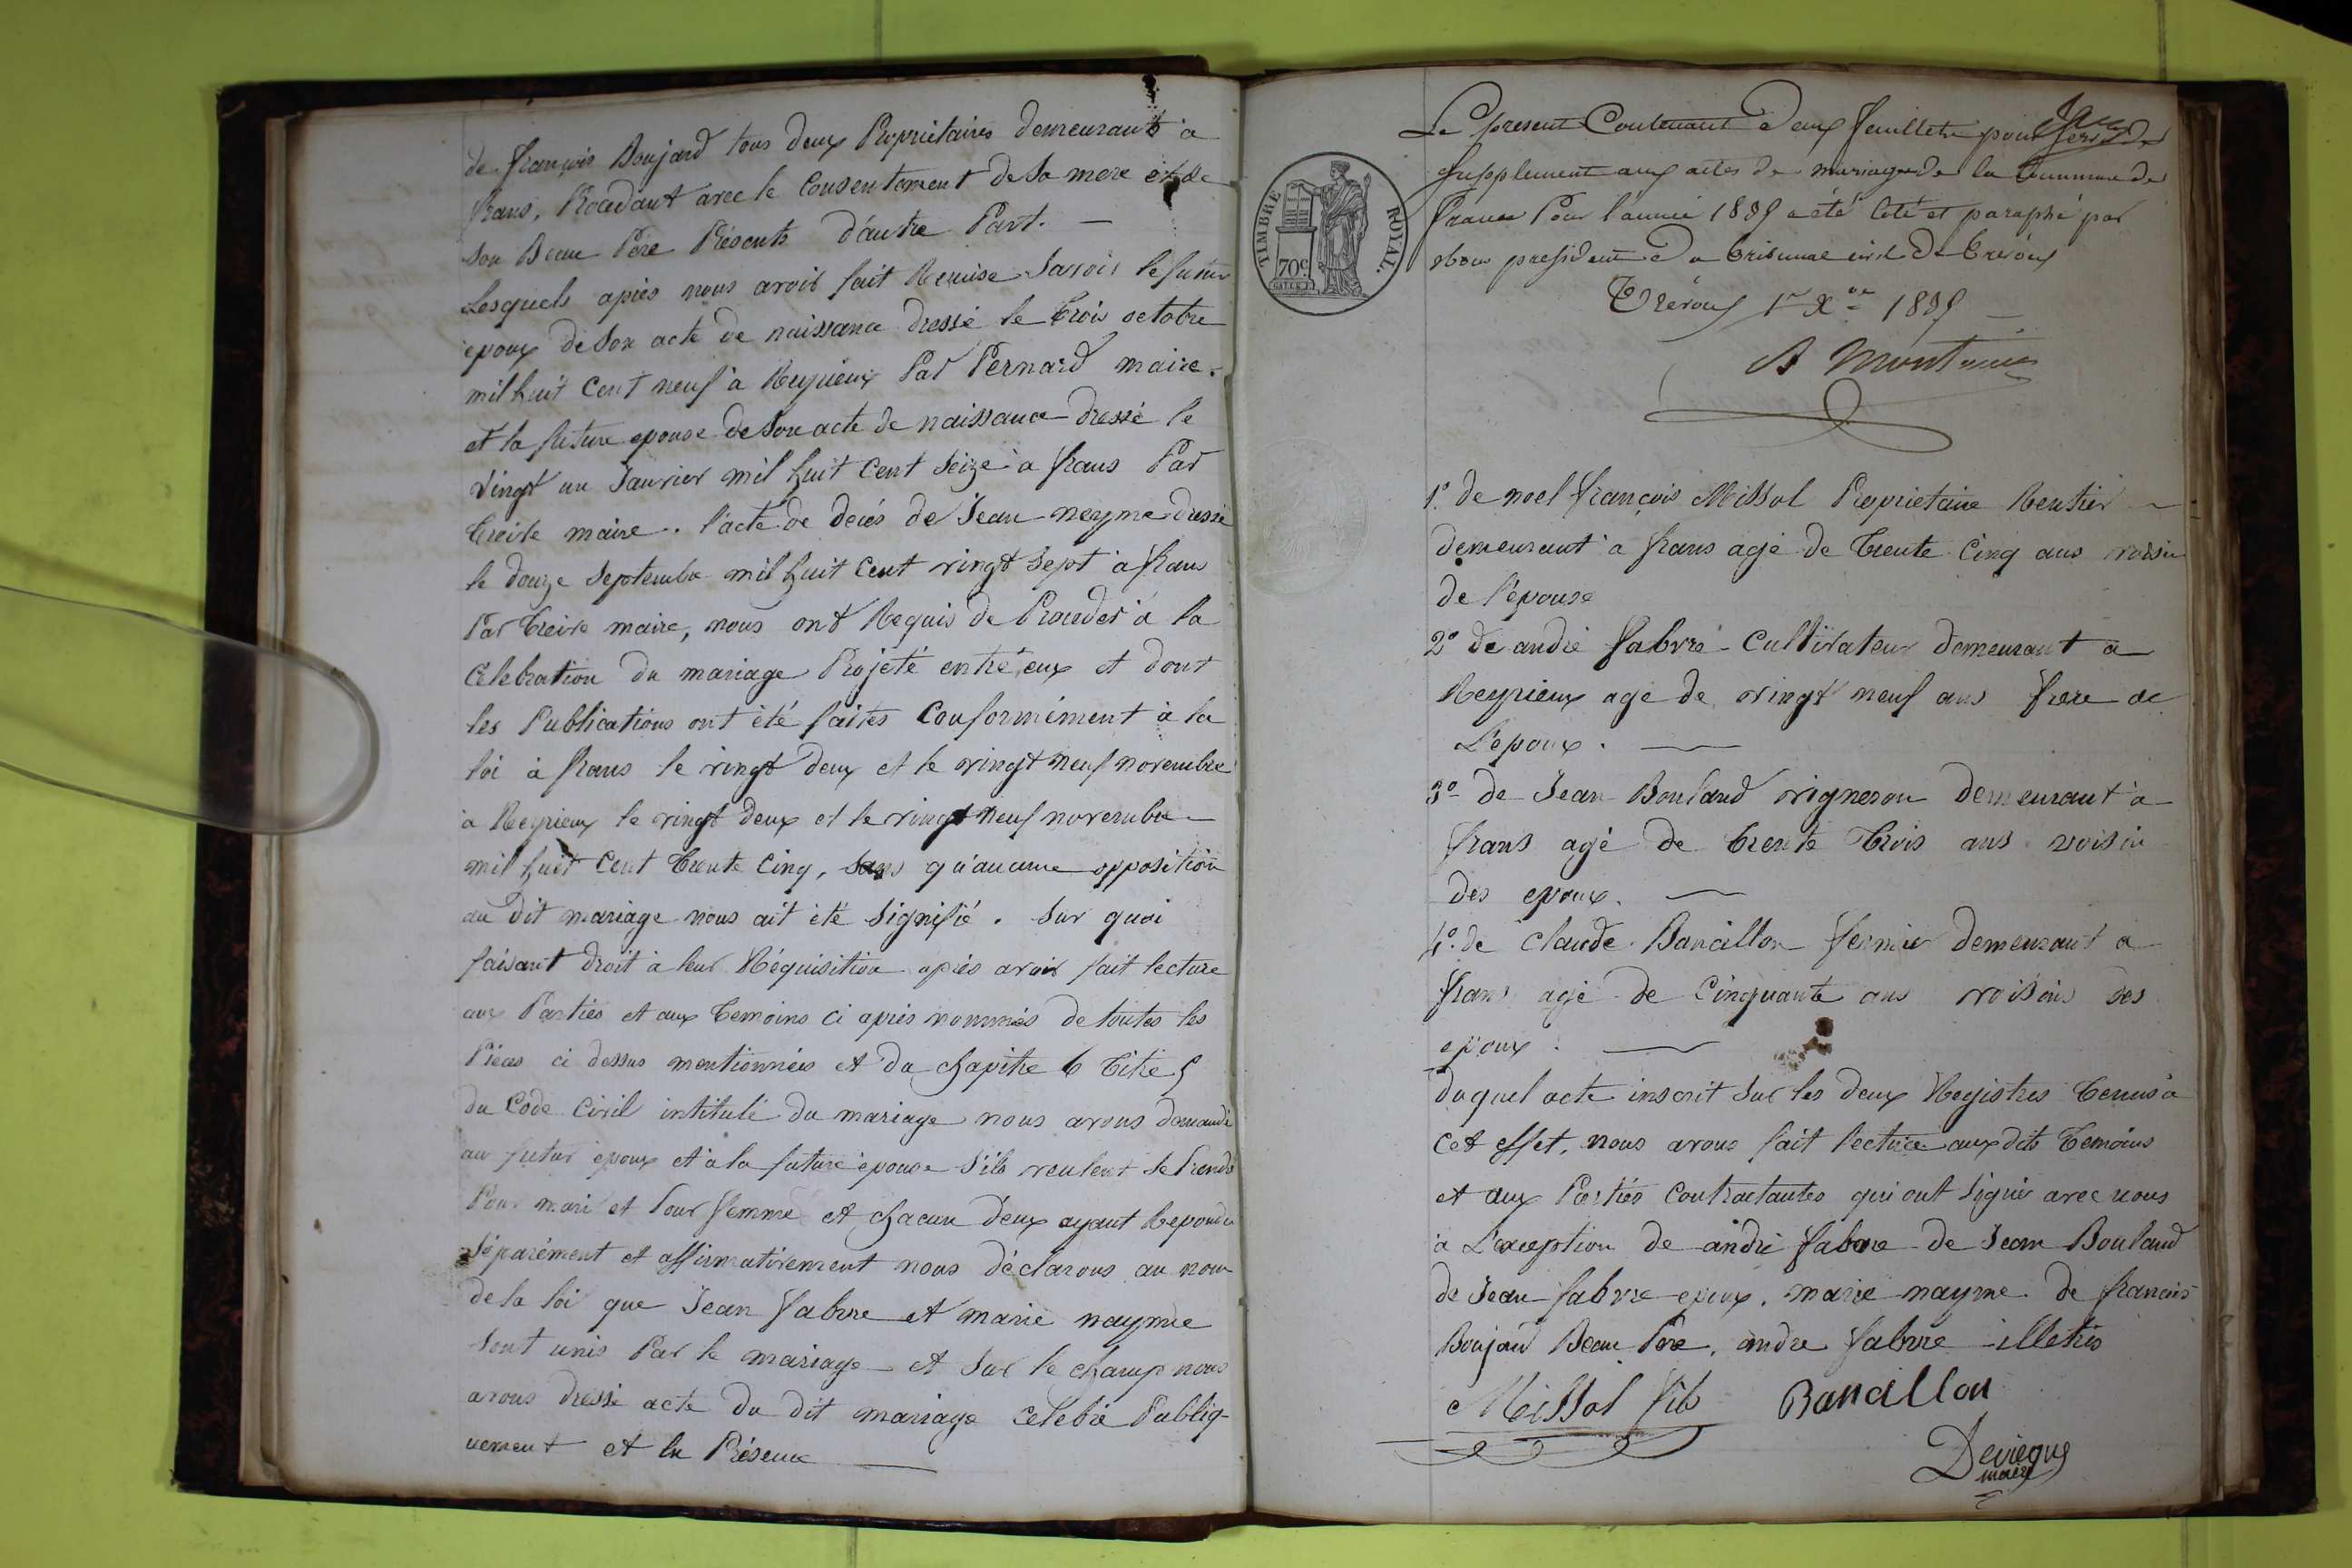 de françois Boujard tous deux Propriétaires demeurants à
frans, Procédant avec le Consentement de Sa mere et de
Son Beau Pere Présents d'autre Part. —
Lesquels après nous avoir fait Remise Savoir le futur
epoux de Son acte de naissance dressé le Trois octobre
mil huit Cent neuf à Reyrieux Par Pernard maire.
et la future epouse de Son acte de naissance dressé le
vingt un Janvier mil huit Cent Seize à frans Par
Treive maire. l'acte de décés de Jean neyme dressé
le douze Septembre mil huit Cent vingt Sept à frans
Par Treive maire, nous ont Requis de Proceder à la
Celebration du mariage Projeté entre eux et dont
les Publications ont été faites Conformément à la
loi à frans le vingt deux et le vingt neuf novembre
à Reyrieux le vingt deux et le vingt neuf novembre
mil huit Cent Trente Cinq, Sans qu'aucune opposition
au dit mariage nous ait été Signifié. Sur quoi
faisant droit à leur Réquisition après avoir fait lecture
aux Parties et aux Temoins ci après nommés de toutes les
Pièces ci dessus mentionnées et du chapitre 6 Titre 5
du Code Civil intitulé du mariage nous avons demandé
au futur époux et à la future épouse S'ils veulent se Prendre
Pour mari et Pour femme et chacun d'eux ayant Repondu
Séparément et affirmativement nous déclarons au nom
de la loi que Jean fabvre et marie nayme
Sont unis Par le mariage et Sur le champ nous
avons dressé acte du dit mariage Celebré Publiq-
uement et En Présence —
Le present Contenant Deux feuillets pour servir de
Supplement aux actes de mariage de la Commune de
Frans Pour l'année 1835 a été Coté et paraphé par
nous president du Tribunal civil de Trévoux
Trévoux 1er Xbre 1835
TIMBRE ROYAL.
70c
1º de noel françois Missol Propriétaine Rentier
demeurant à frans agé de Trente Cinq ans voisin
de l'épouse
2º de andré fabvre Cultivateur demeurant à
Reyrieux agé de vingt neuf ans frere de
L'epoux. —
3º de Jean Bouland vigneron demeurant à
frans agé de Trente Trois ans voisin
des epoux. —
4º de Claude Bancillon fermier demeurant à
frans agé de Cinquante ans voisins des
epoux. —
duquel acte inscrit Sur les deux Registres Tenus à
Cet effet, nous avons fait lecture aux dits Temoins
et aux Parties Contractantes qui ont Signés avec nous
à L'exception de andré fabvre de Jean Bouland
de Jean fabvre epoux, marie nayme de françois
Boujard Beau Père, andre fabvre illetrés
Missol fils Bancillon
Deviegue
maire